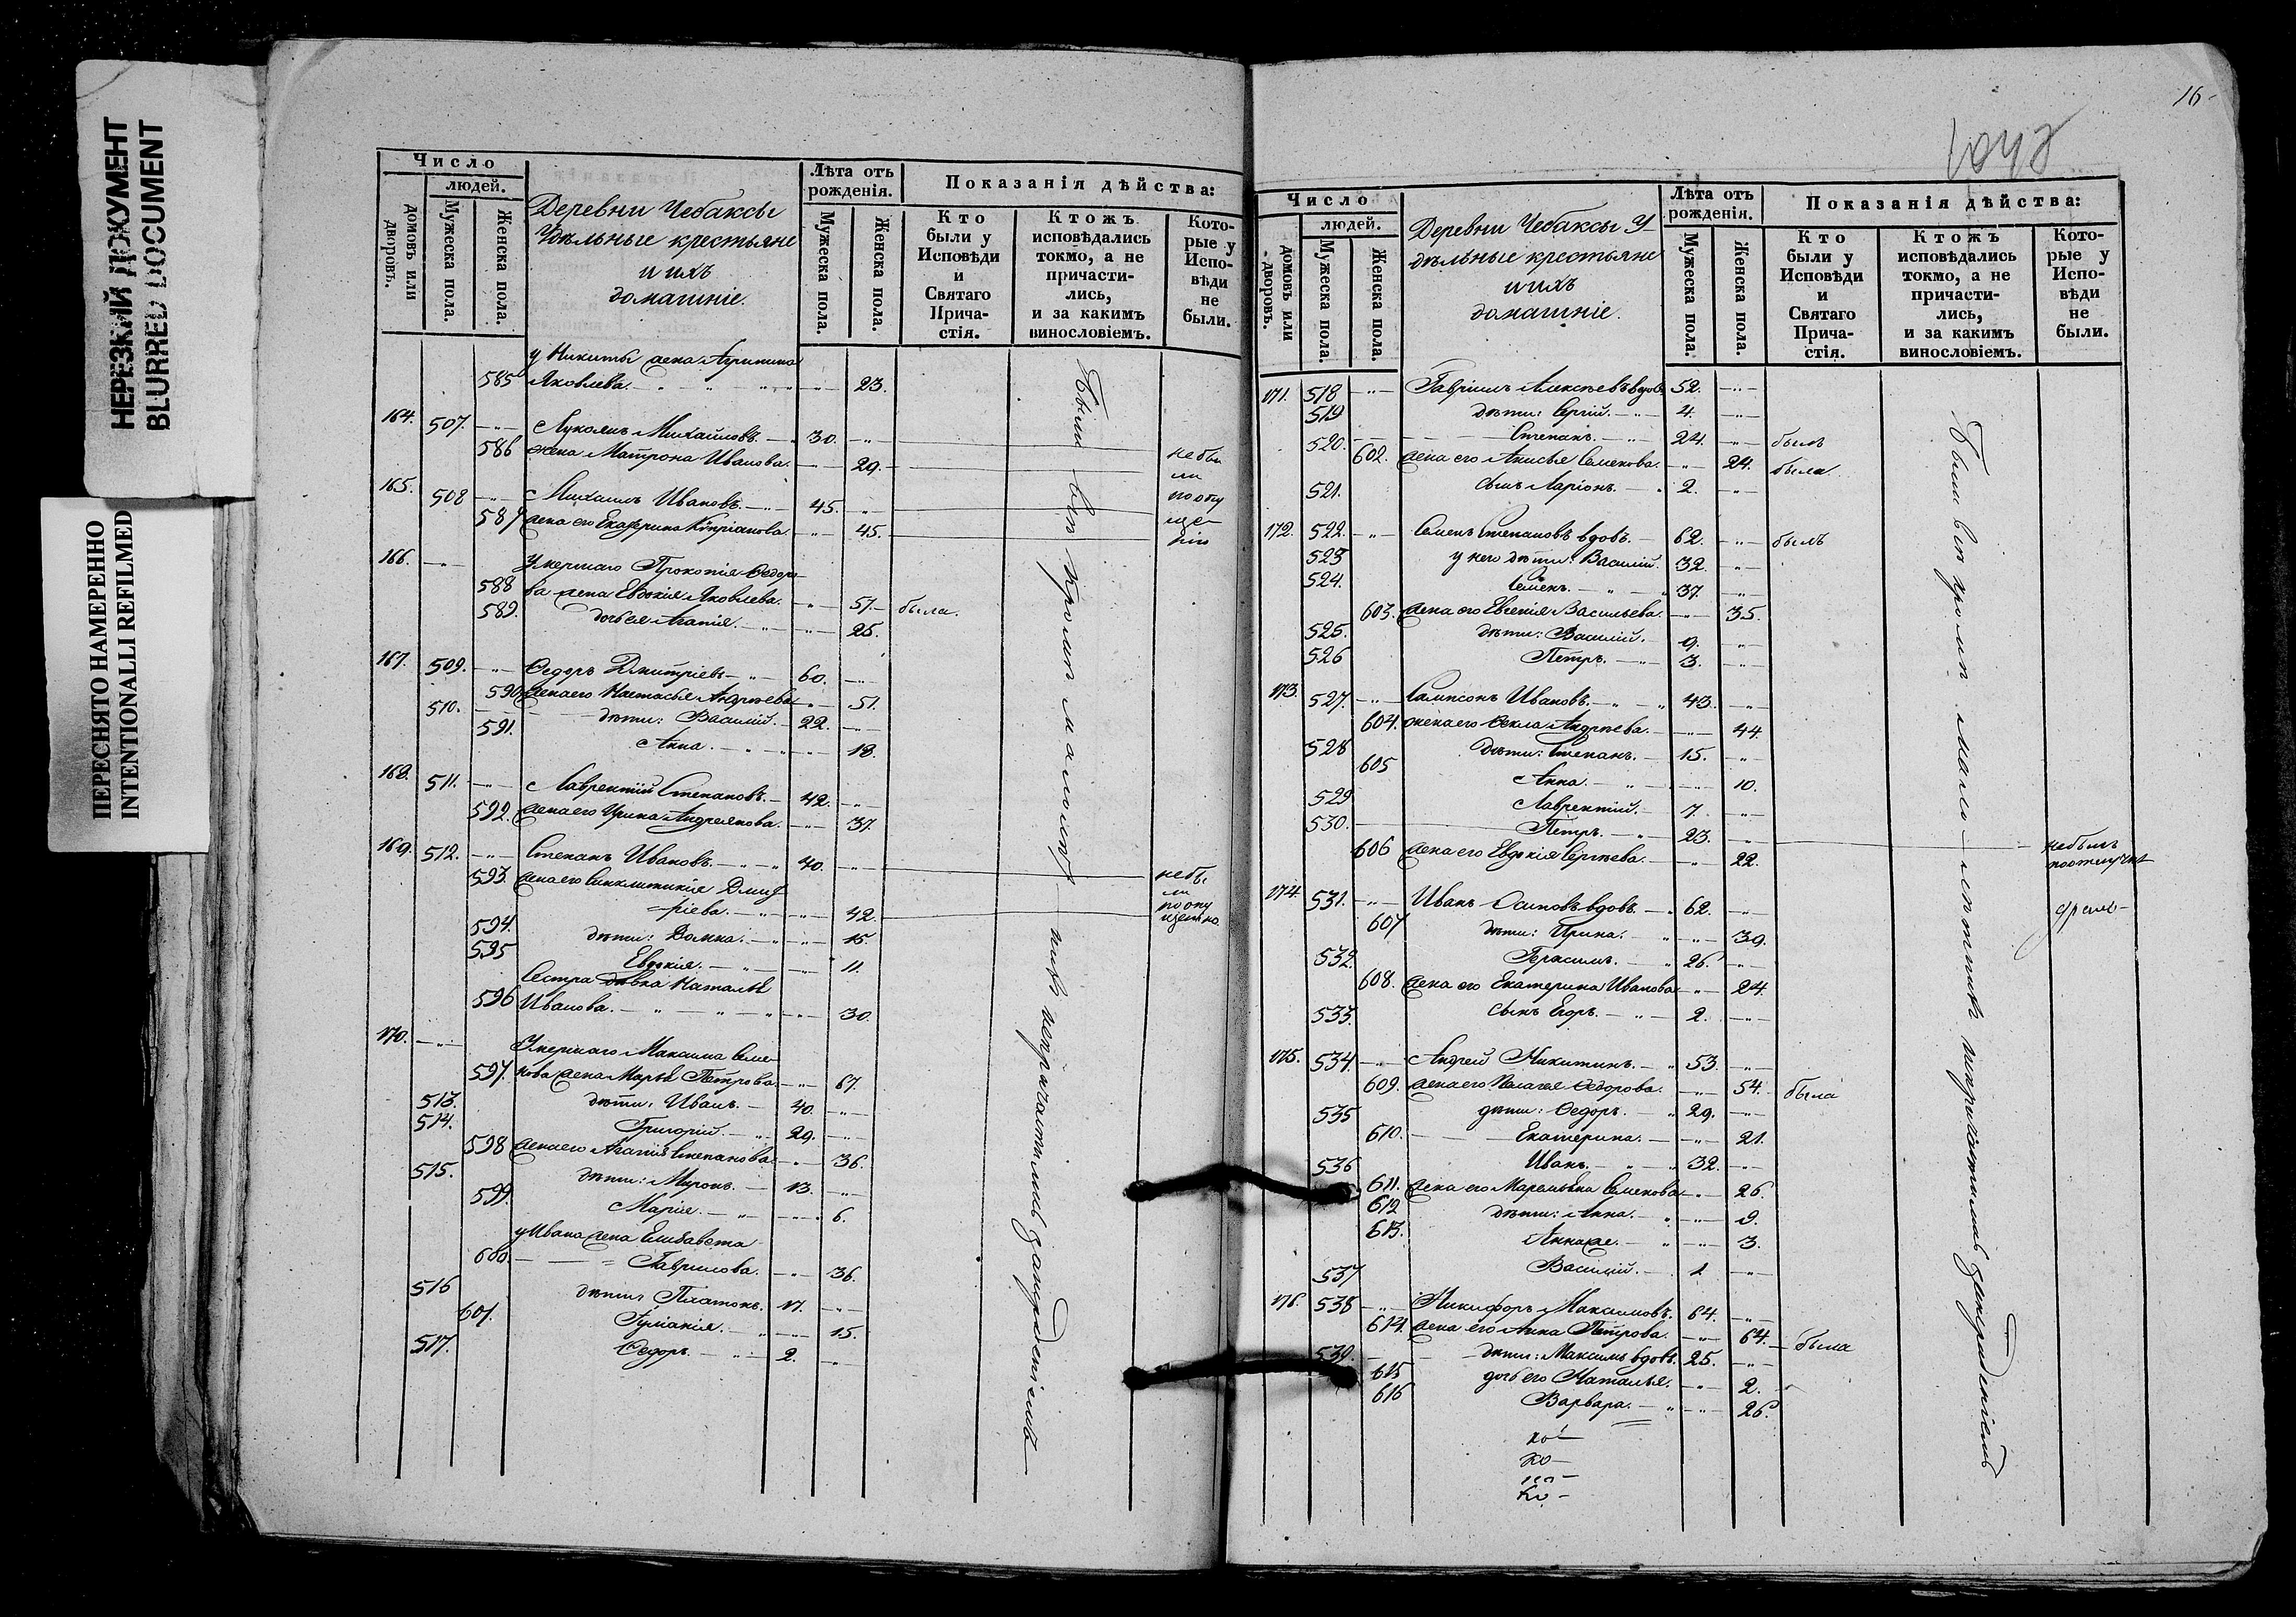 НЕРЕЗКИЙ ДОКУМЕНТ
BLURRED DOCUMENT
ПЕРЕСНЯТО НАМЕРЕННО
INTENTIONALLI REFILMED
Число
людей.
домовъ или дворовъ.
Мужеска пола.
Женска пола.
Деревни Чебаксы
Удѣльные крестьяне
и ихъ
домашніе.
Лѣта отъ рожденія.
Мужеска пола.
Женска пола.
Показанія дѣйства:
Кто были у Исповѣди и Святаго Прича-стія.
Ктожъ исповѣдались токмо, а не причасти-лись, и за какимъ винословіемъ.
Кото-рые у Испо-вѣди не были.
у Никиты жена Агрипина
585 Яковлева. 23.
164. 507. Лукоянъ Михайловъ. 30.
586 жена Матрона Иванова. 29. небы
ли
165. 508 Михаилъ Ивановъ. 45. по опу
587 жена его Екатерина Кипріанова. 45. ще-
нію
166. Умершаго Прокопія Ѳедоро-
588 ва жена Евдокія Яковлева. 51. была.
589. дочь ея Агапія. 25.
167. 509. Ѳедоръ Дмитріевъ 60.
590 жена его Настасья Андреева 51.
510. дѣти: Василій. 22.
591. Анна. 18.
168. 511. Лаврентій Степановъ. 42.
592. жена его Ирина Андреянова. 37.
169. 512. Степанъ Ивановъ. 40.
593. жена его Синклитикія Дмит небы
ли
=ріева. 42. по опу
щенію
594. дѣти: Домна. 15.
595 Евдокія. 11.
Сестра дѣвка Наталья
596 Иванова. 30.
170. Умершаго Максима Семе-
597. нова жена Марья Петрова. 67.
513. дѣти: Иванъ. 40.
514. Григорій. 29.
598 жена его Агапія Степанова 36.
515. дѣти: Миронъ. 13.
599. Марія. 6.
у Ивана жена Елисавета
600. Гаврилова. 36.
516 дѣти Платонъ. 17.
601. Іуліанія. 15.
517. Ѳедоръ. 2.
Были вси кромѣ малолѣтнихъ непричастились за нерадѣніемъ
16
1042
Число
людей.
домовъ или дворовъ.
Мужеска пола.
Женска пола.
Деревни Чебаксы У-
дѣльные крестьяне
и ихъ
домашніе.
Лѣта отъ рожденія.
Мужеска пола.
Женска пола.
Показанія дѣйства:
Кто были у Исповѣди и Святаго Прича-стія.
Ктожъ исповѣдались токмо, а не причасти-лись, и за какимъ винословіемъ.
Кото-рые у Испо-вѣди не были.
171. 518 Гавріилъ Алексѣевъ вдов. 52.
519 дѣти: Сергій. 4.
520. Степанъ. 24. былъ
602. жена его Анисья Семенова. 24. была
521. сынъ Ларіонъ. 2.
172. 522. Семенъ Степановъ вдовъ. 62. былъ
523 у него дѣти: Василій. 32.
524. Семенъ. 37.
603. жена его Евгенія Васильева. 35.
525. дѣти: Василій. 9.
526 Петръ. 3.
173. 527. Сампсонъ Ивановъ. 43.
604. жена его Ѳекла Андреева. 44.
528 дѣти: Степанъ. 15.
605 Анна. 10.
529 Лаврентій. 7.
530. Петръ. 23. небылъ
606 жена его Евдокія Сергѣева. 22. по отлучкѣ
174. 531. Иванъ Осиповъ вдовъ. 62.
607 дѣти: Ирина. 39.
532. Герасимъ. 26.
608. жена его Екатерина Иванова 24.
533. сынъ Егоръ. 2.
175. 534. Андрей Никитинъ. 53.
609. жена его Пелагея Ѳедорова. 54. была
535 дѣти: Ѳедоръ. 29.
610. Екатерина. 21.
536 Иванъ. 32.
611. жена его Маремьяна Семенова 26.
612 дѣти: Анна. 9.
613. Анна же. 3.
537 Василій. 1
176. 538 Никифоръ Максимовъ. 64.
614. жена его Анна Петрова. 64. была
539. дѣти: Максимъ вдовъ. 25.
615 дочь его Наталья. 2.
616 Варвара. 26.
Были вси кромѣ малолѣтнихъ непричастились за нерадѣніемъ